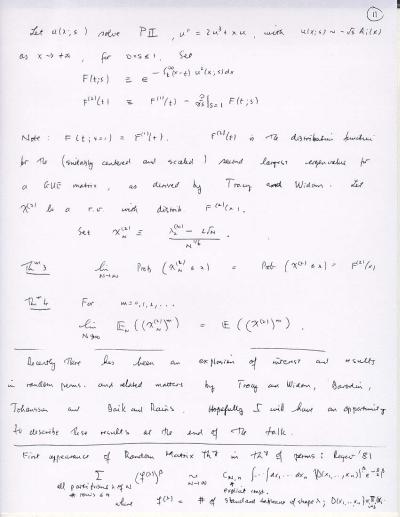 11
Let u(x;s) solve PII, u" = 2u³ + xu, with u(x;s) ~ -√s Ai(x)
as x → +∞, for 0≤s≤1. Set
F(t;s) ≡ e^{-∫_t^∞ (x-t) u²(x;s) dx}
F^{(2)}(t) ≡ F^{(1)}(t) - ∂/∂s|_{s=1} F(t;s)
Note: F(t;s=1) = F^{(1)}(t). F^{(2)}(t) is the distribution function
for the (suitably centered and scaled) second largest eigenvalue for
a GUE matrix, as derived by Tracy and Widom. Let
χ^{(2)} be a r.v. with distrib. F^{(2)}(x).
Set χ_N^{(2)} ≡ (λ_2^{(N)} - 2√N) / N^{1/6}.
Th^m 3 lim_{N→∞} Prob (χ_N^{(2)} ≤ x) = Prob (χ^{(2)} ≤ x) = F^{(2)}(x)
Th^m 4 For m=0,1,2,...
lim_{N→∞} E_N((χ_N^{(2)})^m) = E((χ^{(2)})^m).
Recently there has been an explosion of interest and results
in random perms. and related matters by Tracy and Widom, Borodin,
Johansson and Baik and Rains. Hopefully I will have an opportunity
to describe these results at the end of the talk.
First appearance of Random Matrix Th^y in th^y of perms: Regev '81
Σ (f^{(λ)})^β ~ C_{N,n} ∫...∫ dx_1...dx_n |D(x_1,...,x_n)|^β
all partitions λ of N N→∞ explicit const.
# rows ≤ n where f^{(λ)} = # of standard tableaux of shape λ;